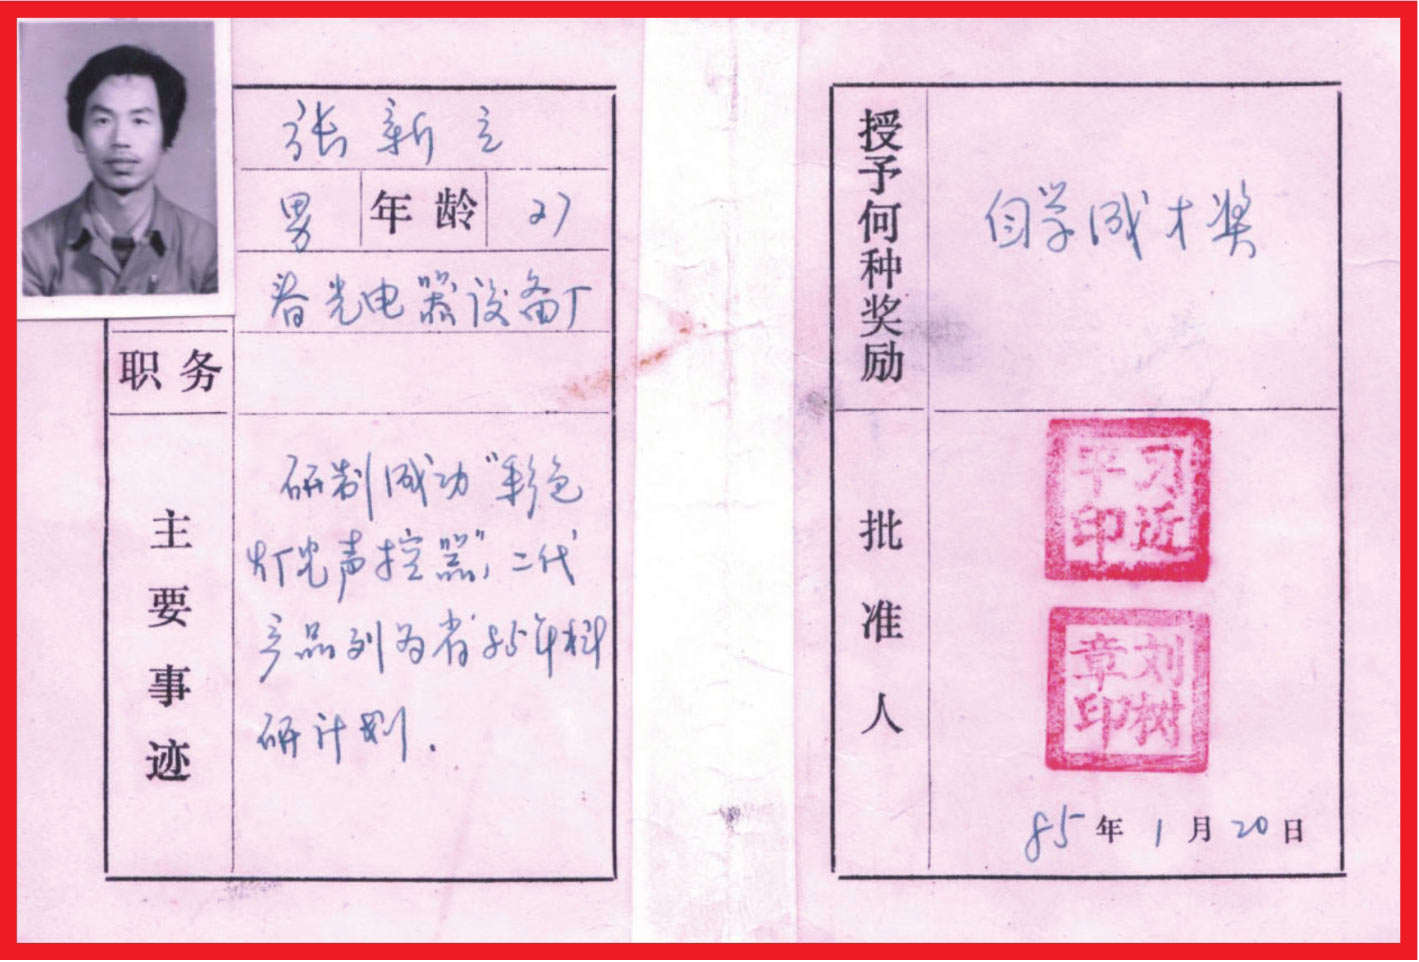 张新立
男 年龄 27
春光电器设备厂
职务
主要事迹
研制成功“彩色
灯光声控器”，二代
产品列为省85年科
研计划.
授予何种奖励
自学成才奖
批准人
习近平印
刘树章印
85年1月20日